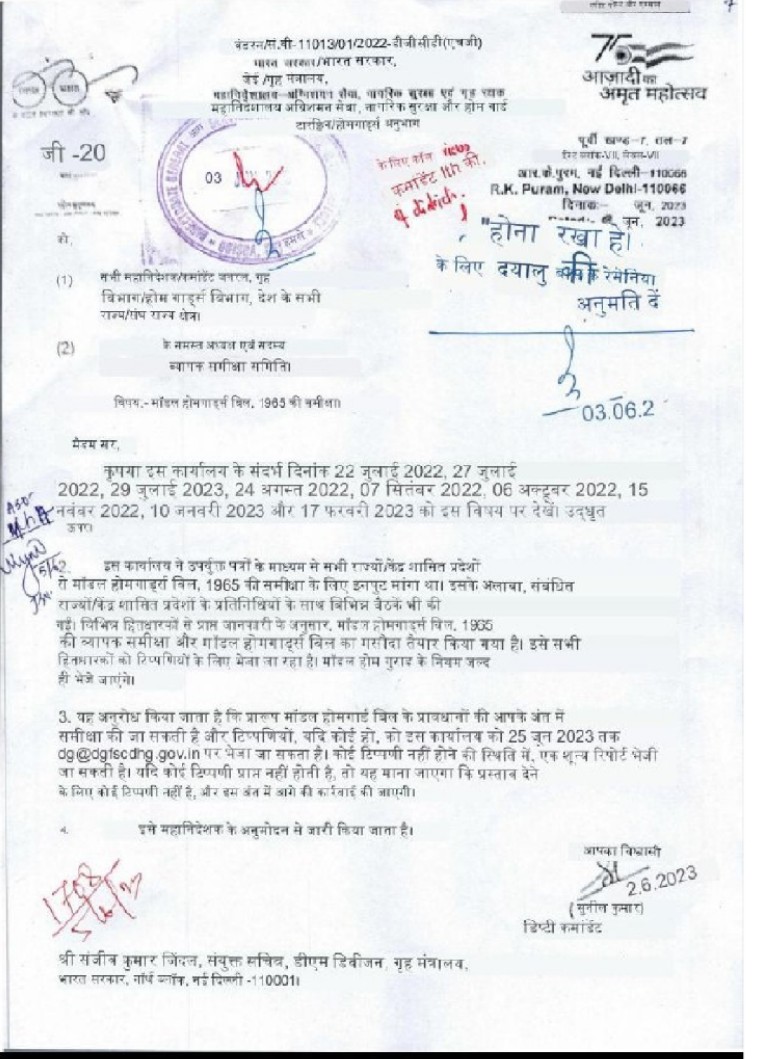 वंडरन/सं.वी-11013/01/2022-डीजीसीडी(एचजी)
भारत सरकार/भारत सरकार,
जेई /गृह मंत्रालय,
महानिदेशालय अग्निशमन सेवा, नागरिक सुरक्षा और होम गार्ड
टारङ्किन/होमगार्ड्स अनुभाग
75
आज़ादी का
अमृत महोत्सव
जी -20
03
पूर्वी खण्ड-7, तल-7
आर.के.पुरम, नई दिल्ली-110066
R.K. Puram, New Delhi-110066
दिनाक:- जून, 2023
जून, 2023
के लिए
कमांडेंट
"होना रखा है।
के लिए दयालु की रेमेनिया
अनुमति दें
03.06.2
को,
(1) सभी महानिदेशक/कमांडेंट जनरल, गृह
विभाग/होम गार्ड्स विभाग, देश के सभी
राज्य/संघ राज्य क्षेत्र।
(2) के समस्त अध्यक्ष एवं सदस्य
व्यापक समीक्षा समिति।
विषय:- मॉडल होमगार्ड्स बिल, 1965 की समीक्षा।
मैडम सर,
कृपया इस कार्यालय के संदर्भ दिनांक 22 जुलाई 2022, 27 जुलाई
2022, 29 जुलाई 2023, 24 अगस्त 2022, 07 सितंबर 2022, 06 अक्टूबर 2022, 15
नवंबर 2022, 10 जनवरी 2023 और 17 फरवरी 2023 को इस विषय पर देखें। उद्धृत
ऊपर।
इस कार्यालय ने उपर्युक्त पत्रों के माध्यम से सभी राज्यों/केंद्र शासित प्रदेशों
से मॉडल होमगार्ड्स बिल, 1965 की समीक्षा के लिए इनपुट मांगा था। इसके अलावा, संबंधित
राज्यों/केंद्र शासित प्रदेशों के प्रतिनिधियों के साथ विभिन्न बैठकें भी की
गईं। विभिन्न हितधारकों से प्राप्त जानकारी के अनुसार, मॉडल होमगार्ड्स बिल, 1965
की व्यापक समीक्षा और मॉडल होमगार्ड्स बिल का मसौदा तैयार किया गया है। इसे सभी
हितधारकों को टिप्पणियों के लिए भेजा जा रहा है। मॉडल होम गुराड के नियम जल्द
ही भेजे जाएंगे।
3. यह अनुरोध किया जाता है कि प्रारूप मॉडल होमगार्ड बिल के प्रावधानों की आपके अंत में
समीक्षा की जा सकती है और टिप्पणियों, यदि कोई हो, को इस कार्यालय को 25 जून 2023 तक
dg@dgfscdhg.gov.in पर भेजा जा सकता है। कोई टिप्पणी नहीं होने की स्थिति में, एक शून्य रिपोर्ट भेजी
जा सकती है। यदि कोई टिप्पणी प्राप्त नहीं होती है, तो यह माना जाएगा कि प्रस्ताव देने
के लिए कोई टिप्पणी नहीं है, और इस अंत में आगे की कार्रवाई की जाएगी।
4. इसे महानिदेशक के अनुमोदन से जारी किया जाता है।
आपका विश्वासी
2.6.2023
(सुनील कुमार)
डिप्टी कमांडेंट
श्री संजीव कुमार जिंदल, संयुक्त सचिव, डीएम डिवीजन, गृह मंत्रालय,
भारत सरकार, नॉर्थ ब्लॉक, नई दिल्ली -110001।